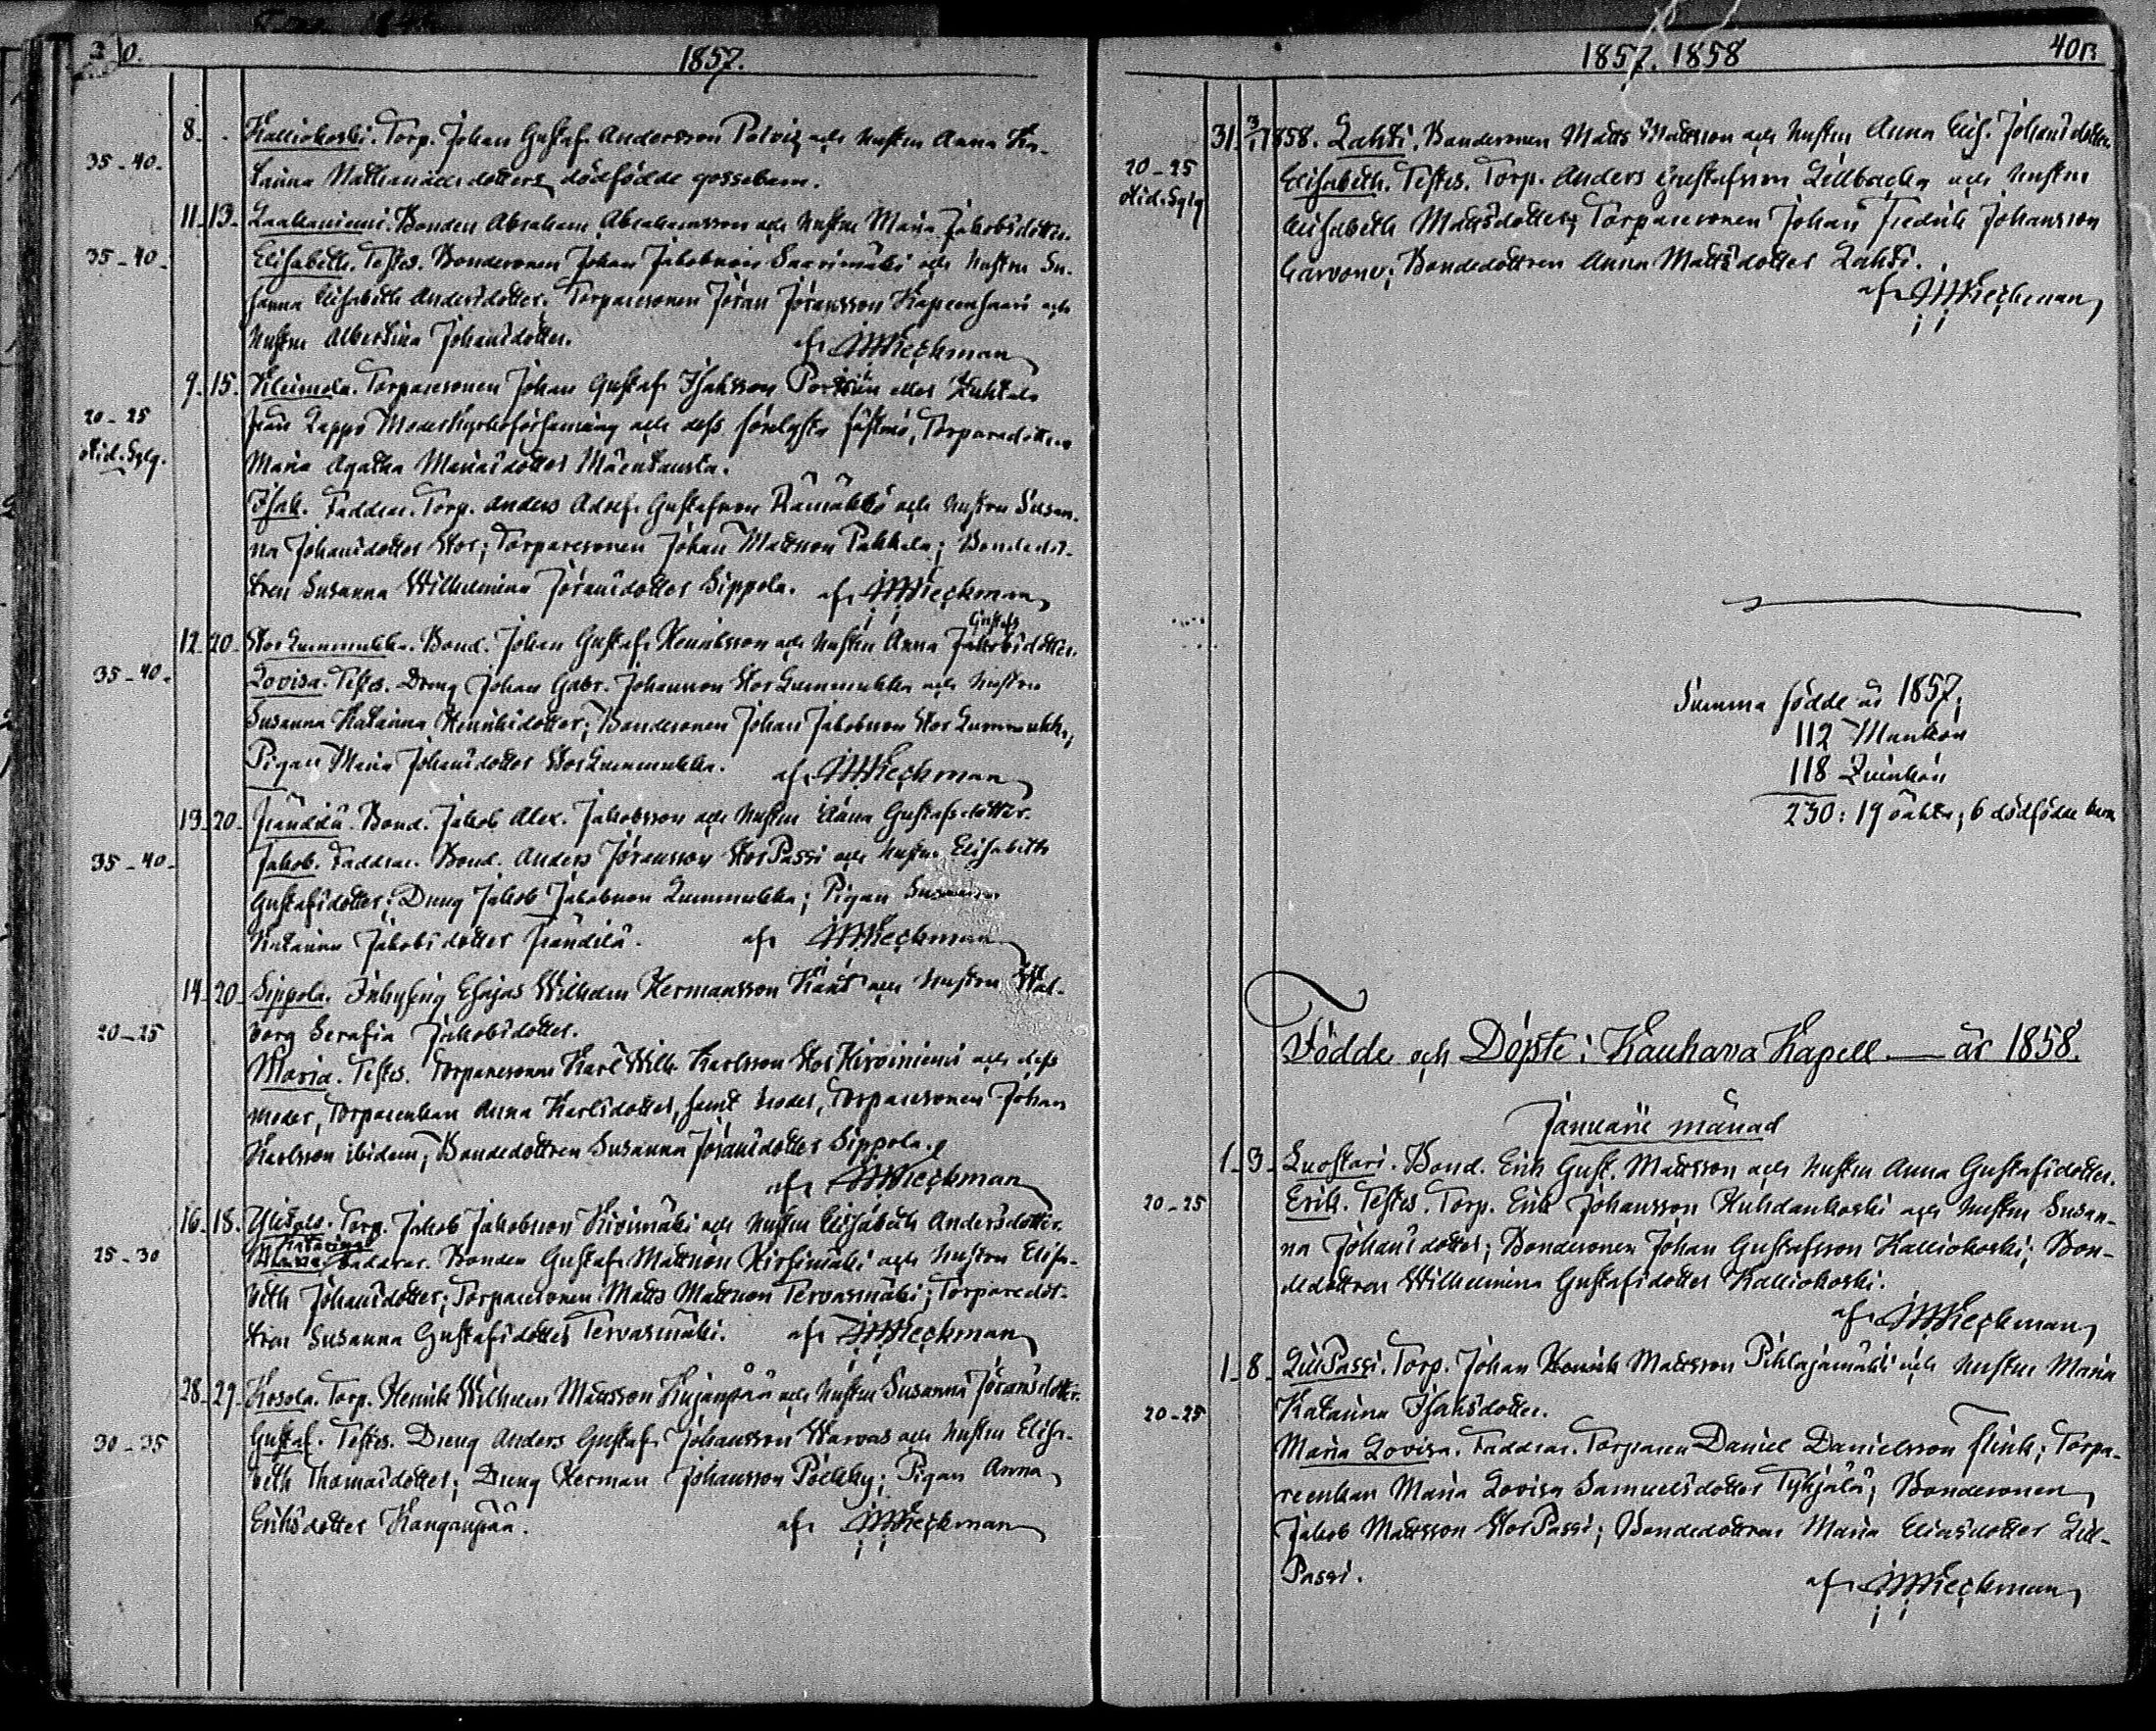 1857.
8. Kalliokoski. Torp. Johan Gustaf Andersson Polviz och hustru Anna Ka-
35-40. tarina Matthiaedotters dödfödde gossebarn.
11. 13. Laakaniemi. Bonden Abraham Abrahamsson och hustru Maria Jakobsdotter.
35-40. Elisabeth. Testes. Bondesonen Johan Jakobsson Saarimäki och hustru Su-
sanna Elisabeth Andersdotter. Torparesonen Jöran Jöransson och
hustru Albertina Johansdotter. af Wieckman
9. 15. Kleimola. Torparesonen Johan Gustaf Isaksson eller Huhtala
20-25 från Lappo Moderkyrkoförsamling och dess förelofta fästmö, Torparedottren
Maria Agatha Mariasdotter Mäentausta.
Isak. Faddrar. Torp. Anders Adolf Gustafsson Rämäkkö och hustru Susan-
na Johansdotter Stor; Torparesonen Johan Mattsson Pakkala; Bondedot-
tren Susanna Wilhelmina Jöransdotter Sippola. af Wieckman
Gustafs
12. 20. StorLummukka. Bond. Johan Gustaf Henriksson och hustru Anna Jakobsdotter.
35-40. Lovisa. Testes. Dreng Johan Gabr. Johansson StorLummukka och hustru
Susanna Katarina Henriksdotter; Bondesonen Johan Jakobsson StorLummukka;
Pigan Maria Johansdotter StorLummukka. af Wieckman
13. 20. Frändilä. Bond. Jakob Alex. Jakobsson och hustru Gustafsdotter.
35-40. Jakob. Faddrar. Bond. Anders Jöransson StorPassi och hustru Elisabeth
Gustafsdotter; Dreng Jakob Jakobsson Lummukka; Pigan Susanna
Katarina Jakobsdotter Frändilä. af Wieckman
14. 20. Sippola. Inhysing Esajas Wilhelm Hermansson och hustru Wal-
20-25 borg Serafia Jakobsdotter.
Maria. Testes. Torparesonen Karl Wilh. Karlsson StorHirviniemi och dess
moder, Torparenkan Anna Karlsdotter, samt broder, Torparesonen Johan
Karlsson ibidem; Bondedottren Susanna Jöransdotter Sippola.
af Wieckman
16. 18. Ylitalo. Torp. Jakob Jakobsson Kivimäki och hustru Elisabeth Andersdotter.
Katarina
25-30 Maria. Faddrar. Bonden Gustaf Mattsson Kirsimäki och hustru Elisa-
beth Johansdotter; Torparesonen Matts Mattsson Tervasmäki; Torparedot-
tren Susanna Gustafsdotter Tervasmäki. af Wieckman
28. 29. Kosola. Torp. Henrik Wilhelm Mattsson Kujanpää och hustru Susanna Jöransdotter.
30-35 Gustaf. Testes. Dreng Anders Gustaf Johansson Warvas och hustru Elisa-
beth Thomasdotter; Dreng Herman Johansson Pöckky; Pigan Anna
Eriksdotter Kangaspää. af Wieckman
1857. 1858 40B
31. 3/1 1858. Lahti. Bondesonen Matts Mattsson och hustru Anna Elis. Johansdotter.
20-25 Elisabeth. Testes. Torp. Anders Gustafsson Lillbacka och hustru
Elisabeth Mattsdotter; Torparesonen Johan Fredrik Johansson
Garvone; Bondedottren Anna Mattsdotter Lahti.
af Wieckman
Summa födde år 1857;
112 Mankön
118 Quinkön
230: 19 oäkta; 6 dödfödde barn
Födde och Döpte i Kauhava Kapell — år 1858.
Januarii månad
1. 3. Luostari. Bond. Erik Gust. Mattsson och hustru Anna Gustafsdotter.
20-25 Erik. Testes. Torp. Erik Johansson Huhdankoski och hustru Susan-
na Johansdotter; Bondesonen Johan Gustafsson Kalliokoski; Bon-
dedottren Wilhelmina Gustafsdotter Kalliokoski.
af Wieckman
1. 8. LillPassi. Torp. Johan Henrik Mattsson Pihlajamäki och hustru Maria
20-25 Katarina Isaksdotter.
Maria Lovisa. Faddrar. Torparen Daniel Danielsson Flink; Torpa-
reenkan Maria Lovisa Samuelsdotter Tyhjälä; Bondesonen
Jakob Mattsson StorPassi; Bondedottren Maria Eliasdotter Lill-
Passi. af Wieckman